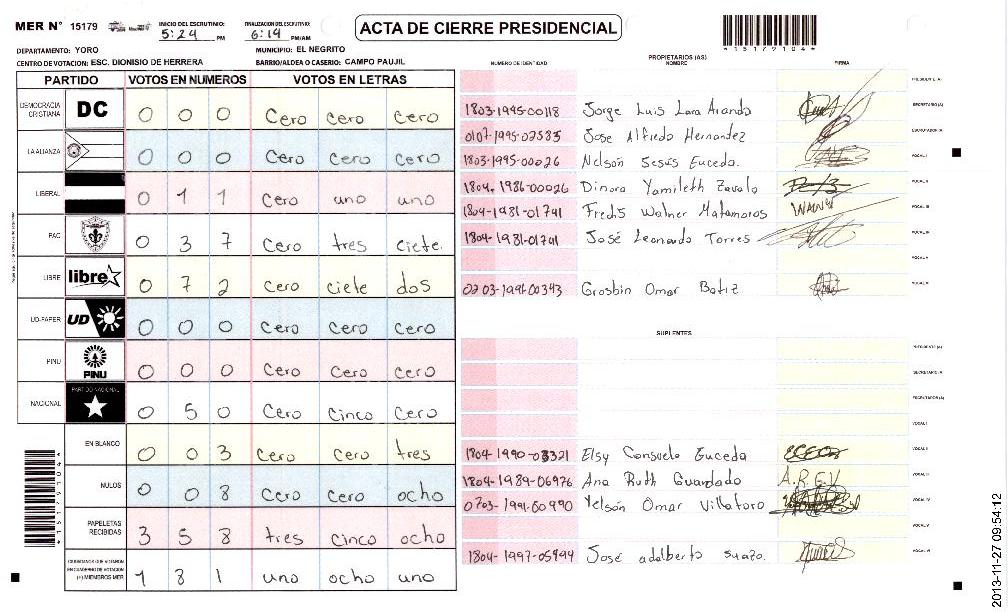 MER N° 15179 INICIO DEL ESCRUTINIO: 5:24 PM FINALIZACION DEL ESCRUTINIO: 6:14 PM/AM
ACTA DE CIERRE PRESIDENCIAL
*15179104*
DEPARTAMENTO: YORO MUNICIPIO: EL NEGRITO
CENTRO DE VOTACION: ESC. DIONISIO DE HERRERA BARRIO/ALDEA O CASERIO: CAMPO PAUJIL
PARTIDO VOTOS EN NUMEROS VOTOS EN LETRAS
DEMOCRACIA CRISTIANA DC 0 0 0 Cero cero cero
LA ALIANZA 0 0 0 Cero Cero Cero
LIBERAL 0 1 1 Cero uno uno
PAC 0 3 7 Cero tres ciete
LIBRE libre 0 7 2 Cero ciete dos
UD-FAPER UD 0 0 0 Cero Cero Cero
PINU PINU 0 0 0 Cero Cero Cero
NACIONAL PARTIDO NACIONAL 0 5 0 Cero Cinco Cero
EN BLANCO 0 0 3 Cero Cero tres
NULOS 0 0 8 Cero Cero ocho
PAPELETAS RECIBIDAS 3 5 8 tres cinco ocho
CIUDADANOS QUE VOTARON EN CUADERNO DE VOTACION (+) MIEMBROS MER 1 8 1 uno ocho uno
*15179104*
PROPIETARIOS (AS)
NUMERO DE IDENTIDAD NOMBRE FIRMA
PRESIDENTE (A)
1803-1995-00118 Jorge Luis Lara Aranda SECRETARIO (A)
0107-1995-02583 Jose Alfredo Hernandez ESCRUTADOR (A)
1803-1995-00026 Nelson Jesús Euceda. VOCAL I
1804-1986-00026 Dinora Yamileth Zavala VOCAL II
1804-1981-01741 Fredis Walner Matamoros VOCAL III
1804-1981-01741 José Leonardo Torres VOCAL IV
VOCAL V
0203-1991-00343 Grosbin Omar Batiz VOCAL VI
SUPLENTES
PRESIDENTE (A)
SECRETARIO (A)
ESCRUTADOR (A)
VOCAL I
1804-1990-03321 Elsy Consuelo Euceda VOCAL II
1804-1989-06976 Ana Ruth Guardado A.R.G.V VOCAL III
0703-1991-00990 Yelsón Omar Villatoro VOCAL IV
VOCAL V
1804-1997-05944 José adalberto suazo. VOCAL VI
2013-11-27 09:54:12